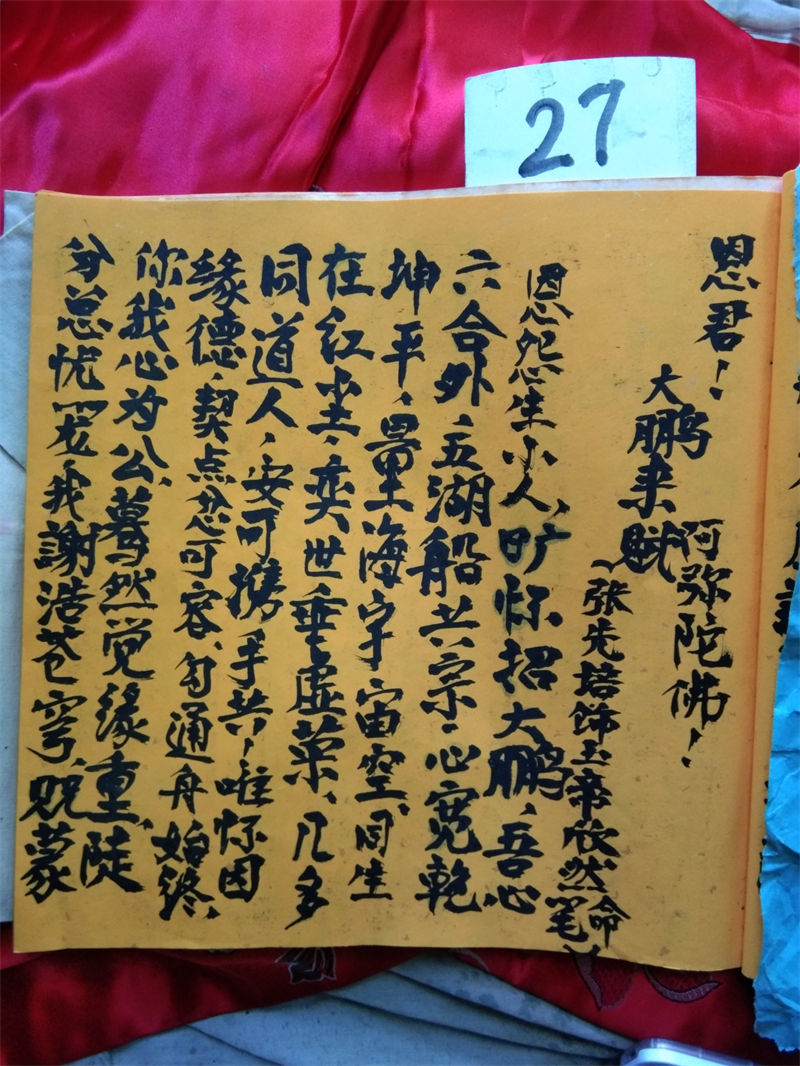 27
恩君！
阿弥陀佛！
大鹏来赋
(张先培饰玉帝欣然命笔)
恩怨生小人，旷怀招大鹏，吾心
六合外，五湖船共宗，心宽乾
坤平，量海宇宙空，同生
在红尘，奕世垂虚荣，几多
同道人，安可携手共，唯怀因
缘德，契点忿可容，匀通舟始终，
你我心为公，蓦然觉缘重，陡
兮总忧，我謝浩苍穹，贶蒙